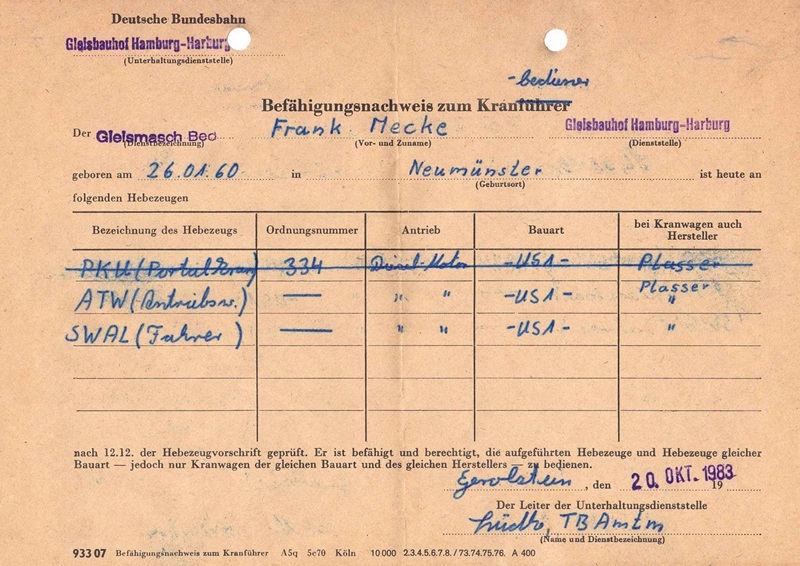 Deutsche Bundesbahn
Gleisbauhof Hamburg-Harburg
(Unterhaltungsdienststelle)
-bediener
Befähigungsnachweis zum Kranführer
Der Gleismasch Bed Frank Mecke Gleisbauhof Hamburg-Harburg
(Dienstbezeichnung) (Vor- und Zuname) (Dienststelle)
geboren am 26.01.60 in Neumünster ist heute an
(Geburtsort)
folgenden Hebezeugen
Bezeichnung des Hebezeugs Ordnungsnummer Antrieb Bauart bei Kranwagen auch Hersteller
PKU (Portalkran) 334 Diesel-Motor -US1- Plasser
ATW (Antriebsw.) — " " -US1- Plasser "
SWAL (Fahrer) — " " -US1- "
nach 12.12. der Hebezeugvorschrift geprüft. Er ist befähigt und berechtigt, die aufgeführten Hebezeuge und Hebezeuge gleicher
Bauart — jedoch nur Kranwagen der gleichen Bauart und des gleichen Herstellers — zu bedienen.
Gerolstein, den 20. OKT. 1983 19
Der Leiter der Unterhaltungsdienststelle
Lüdke, TBAmtm
(Name und Dienstbezeichnung)
933 07 Befähigungsnachweis zum Kranführer A5q 5c70 Köln 10 000 2.3.4.5.6.7.8. / 73.74.75.76. A 400